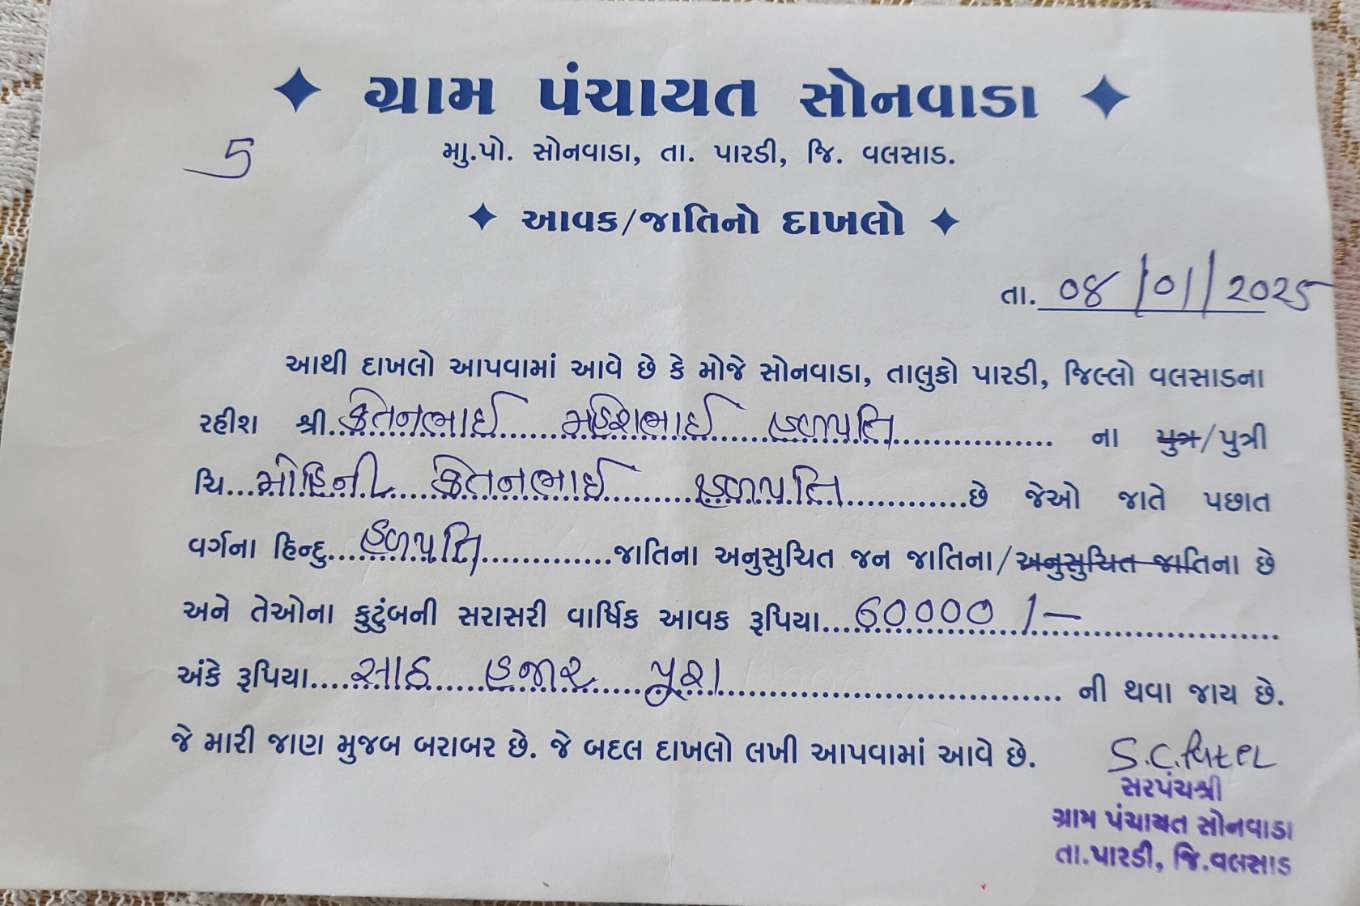 ગ્રામ પંચાયત સોનવાડા
5
મુ.પો. સોનવાડા, તા. પારડી, જિ. વલસાડ.
આવક/જાતિનો દાખલો
તા. 08/01/2025
આથી દાખલો આપવામાં આવે છે કે મોજે સોનવાડા, તાલુકો પારડી, જિલ્લો વલસાડના
રહીશ શ્રી. કેતનભાઈ મહેશભાઈ હળપતિ ના પુત્ર/પુત્રી
ચિ... મોહિની કેતનભાઈ હળપતિ છે જેઓ જાતે પછાત
વર્ગના હિન્દુ.... હળપતિ ....જાતિના અનુસુચિત જન જાતિના/અનુસુચિત જાતિના છે
અને તેઓના કુટુંબની સરાસરી વાર્ષિક આવક રૂપિયા... 60000/-
અંકે રૂપિયા.... સાઠ હજાર પૂરા .... ની થવા જાય છે.
જે મારી જાણ મુજબ બરાબર છે. જે બદલ દાખલો લખી આપવામાં આવે છે.
S.C.Patel
સરપંચશ્રી
ગ્રામ પંચાયત સોનવાડા
તા.પારડી, જિ.વલસાડ